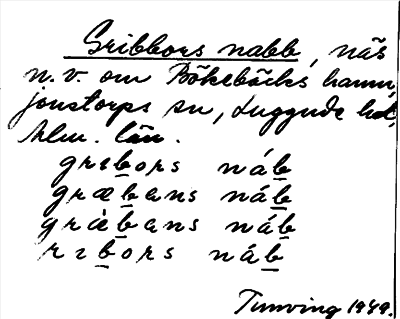 Gribbors nabb, näs
n.v. om Bökebäcks hamn,
Jonstorps sn, Luggude hd,
Mlm. län.
grɪbors náb
græbans náb
græ̀bans náb
rɪbors náb
Tunving 1949.